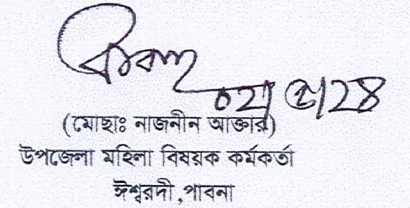 (মোছাঃ নাজনীন আক্তার)
উপজেলা মহিলা বিষয়ক কর্মকর্তা
ঈশ্বরদী,পাবনা